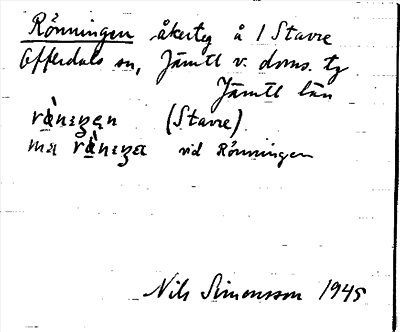 Rönningen åkerteg å 1 Stavre
Offerdals sn, Jämtl v. doms. tg
Jämtl län
(Stavre)
vid Rönningen
Nils Simonsson 1945